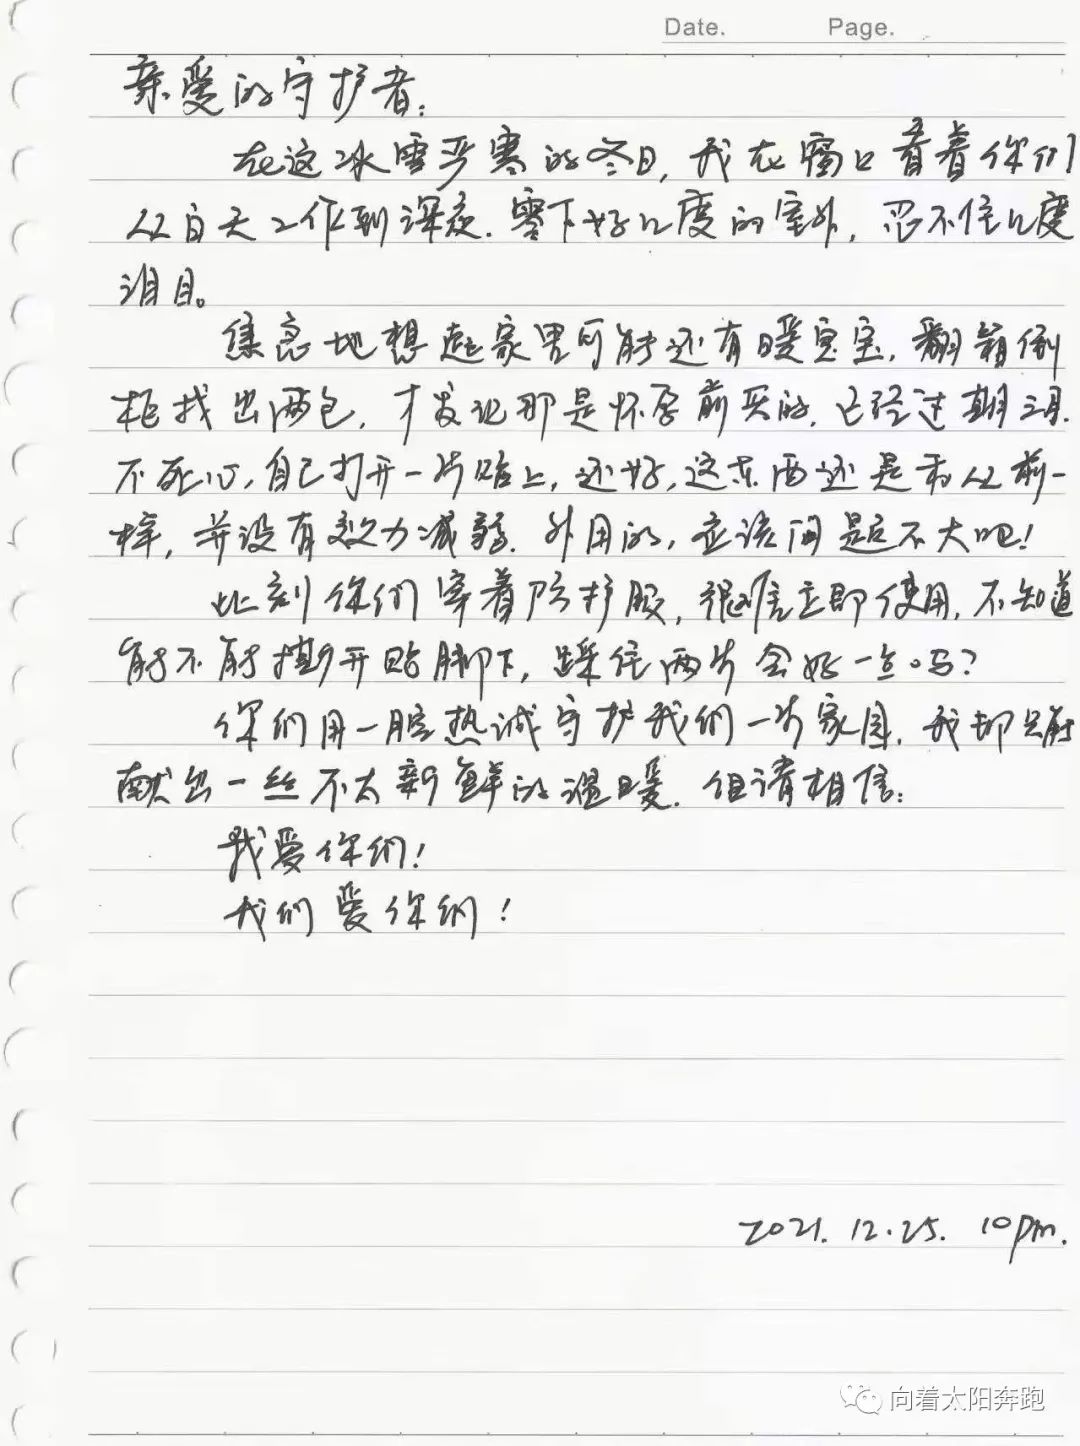 Date. Page.
亲爱的守护者：
在这冰雪严寒的冬日，我在窗口看着你们
从白天工作到深夜．零下好几度的室外，忍不住几度
泪目。
焦急地想起家里可能还有暖宝宝，翻箱倒
柜找出两包，才发现那是怀孕前买的，已经过期三月．
不死心，自己打开一片贴上，还好，这东西还是和从前一
样，并没有效力减弱．外用的，应该问题不大吧！
此刻你们穿着防护服，很难立即使用，不知道
能不能撕开贴脚下，踩住两片会好一点吗？
你们用一腔热诚守护我们一片家园，我却只能
献出一丝不太新鲜的温暖．但请相信：
我爱你们！
我们爱你们！
2021.12.25. 10pm.
向着太阳奔跑